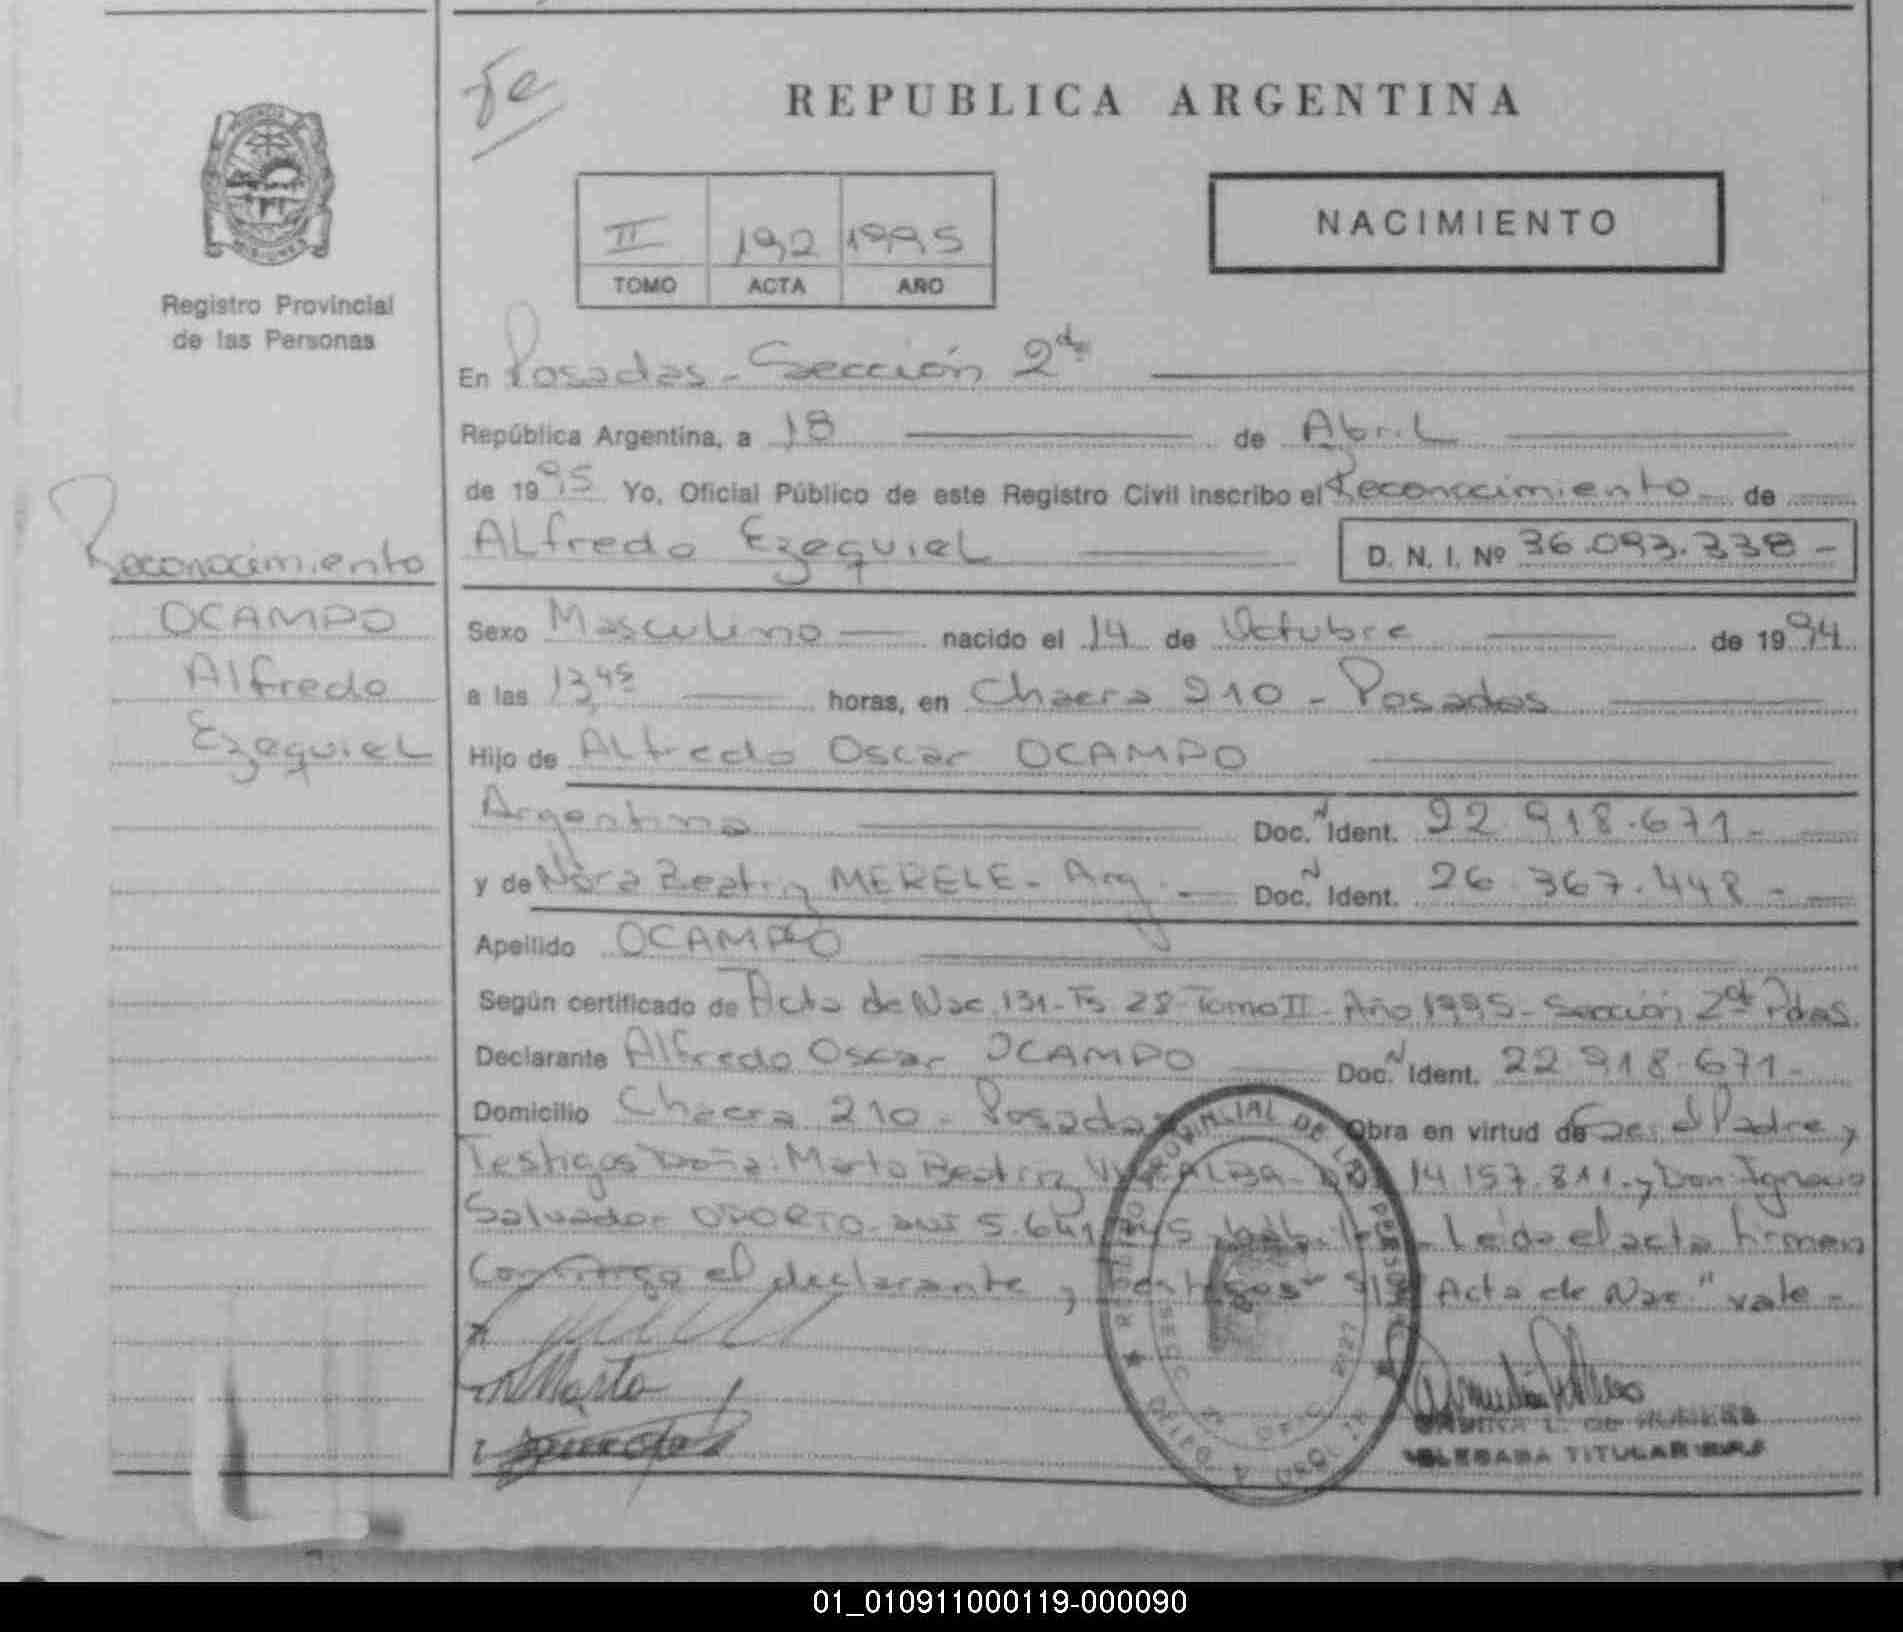 fe
REPUBLICA ARGENTINA
NACIMIENTO
II 192 1995
TOMO ACTA AÑO
MISIONES
Registro Provincial
de las Personas
En Posadas - Sección 2da
República Argentina, a 18 de Abril
de 1995 Yo, Oficial Público de este Registro Civil inscribo el Reconocimiento de
Alfredo Ezequiel D. N. I. Nº 36.093.338 -
Reconocimiento
OCAMPO
Alfredo
Ezequiel
Sexo Masculino nacido el 14 de Octubre de 1994
a las 13,45 horas, en Chacra 210 - Posadas
Hijo de Alfredo Oscar OCAMPO
Argentino Doc. N Ident. 22.918.671 -
y de Nora Beatriz MERELE - Arg. - Doc. N Ident. 26.367.448 -
Apellido OCAMPO
Según certificado de Acta de Nac. 131 - Fs 28 - Tomo II - Año 1995 - Sección 2da Pdas.
Declarante Alfredo Oscar OCAMPO Doc. N Ident. 22.918.671 -
Domicilio Chacra 210 - Posadas Obra en virtud de Ser el Padre y
Testigos Doña: Marta Beatriz 14.157.811 - y Don Ignacio
Salvador OPORTO - DNI 5.641 - Leída el acta firman
Conmigo el declarante y testigos S/l "Acta de Nac." vale -
Marta
DELEGADA TITULAR
REGISTRO PROVINCIAL DE LAS PERSONAS
01_010911000119-000090